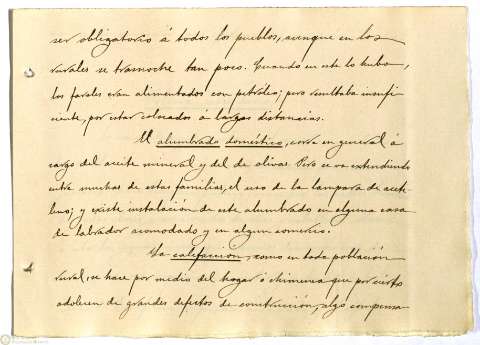 ser obligatorio á todos los pueblos, aunque en los
rurales se trasnoche tan poco. Cuando en este lo hubo,
los faroles eran alimentados con petróleo; pero resultaba insufi-
ciente, por estar colocados á largas distancias.
El alumbrado doméstico, corre en general á
cargo del aceite mineral y del de olivas. Pero se va extendiendo
entre muchas de estas familias, el uso de la lámpara de aceti-
leno; y existe instalación de este alumbrado en alguna casa
de labrador acomodado y en algun comercio.
La calefacción, como en toda población
rural, se hace por medio del hogar ó chimenea que por cierto
adolecen de grandes defectos de construcción, algo compensa-